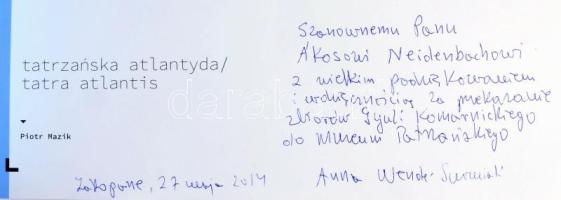 tatrzańska atlantyda/
tatra atlantis
Piotr Mazik
Szanownemu Panu
Akosowi Neidenbachowi
z wielkim podziękowaniem
i wdzięcznością za przekazanie
zbiorów Gyuli Komarnickiego
do Muzeum Tatrzańskiego
Zakopane, 27 maja 2014
Anna Wende-Surmiak